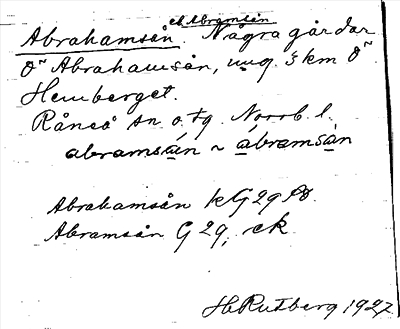 ek Abramsån
Abrahamsån. Några gårdar
O~ Abrahamsån, ung. 3 km O~
Hemberget.
Råneå sn o. tg. Norrb. l.
abramsån ~ ábramsån
Abrahamsån kG2g
Abramsån G2g, ek
H Rutberg 1927